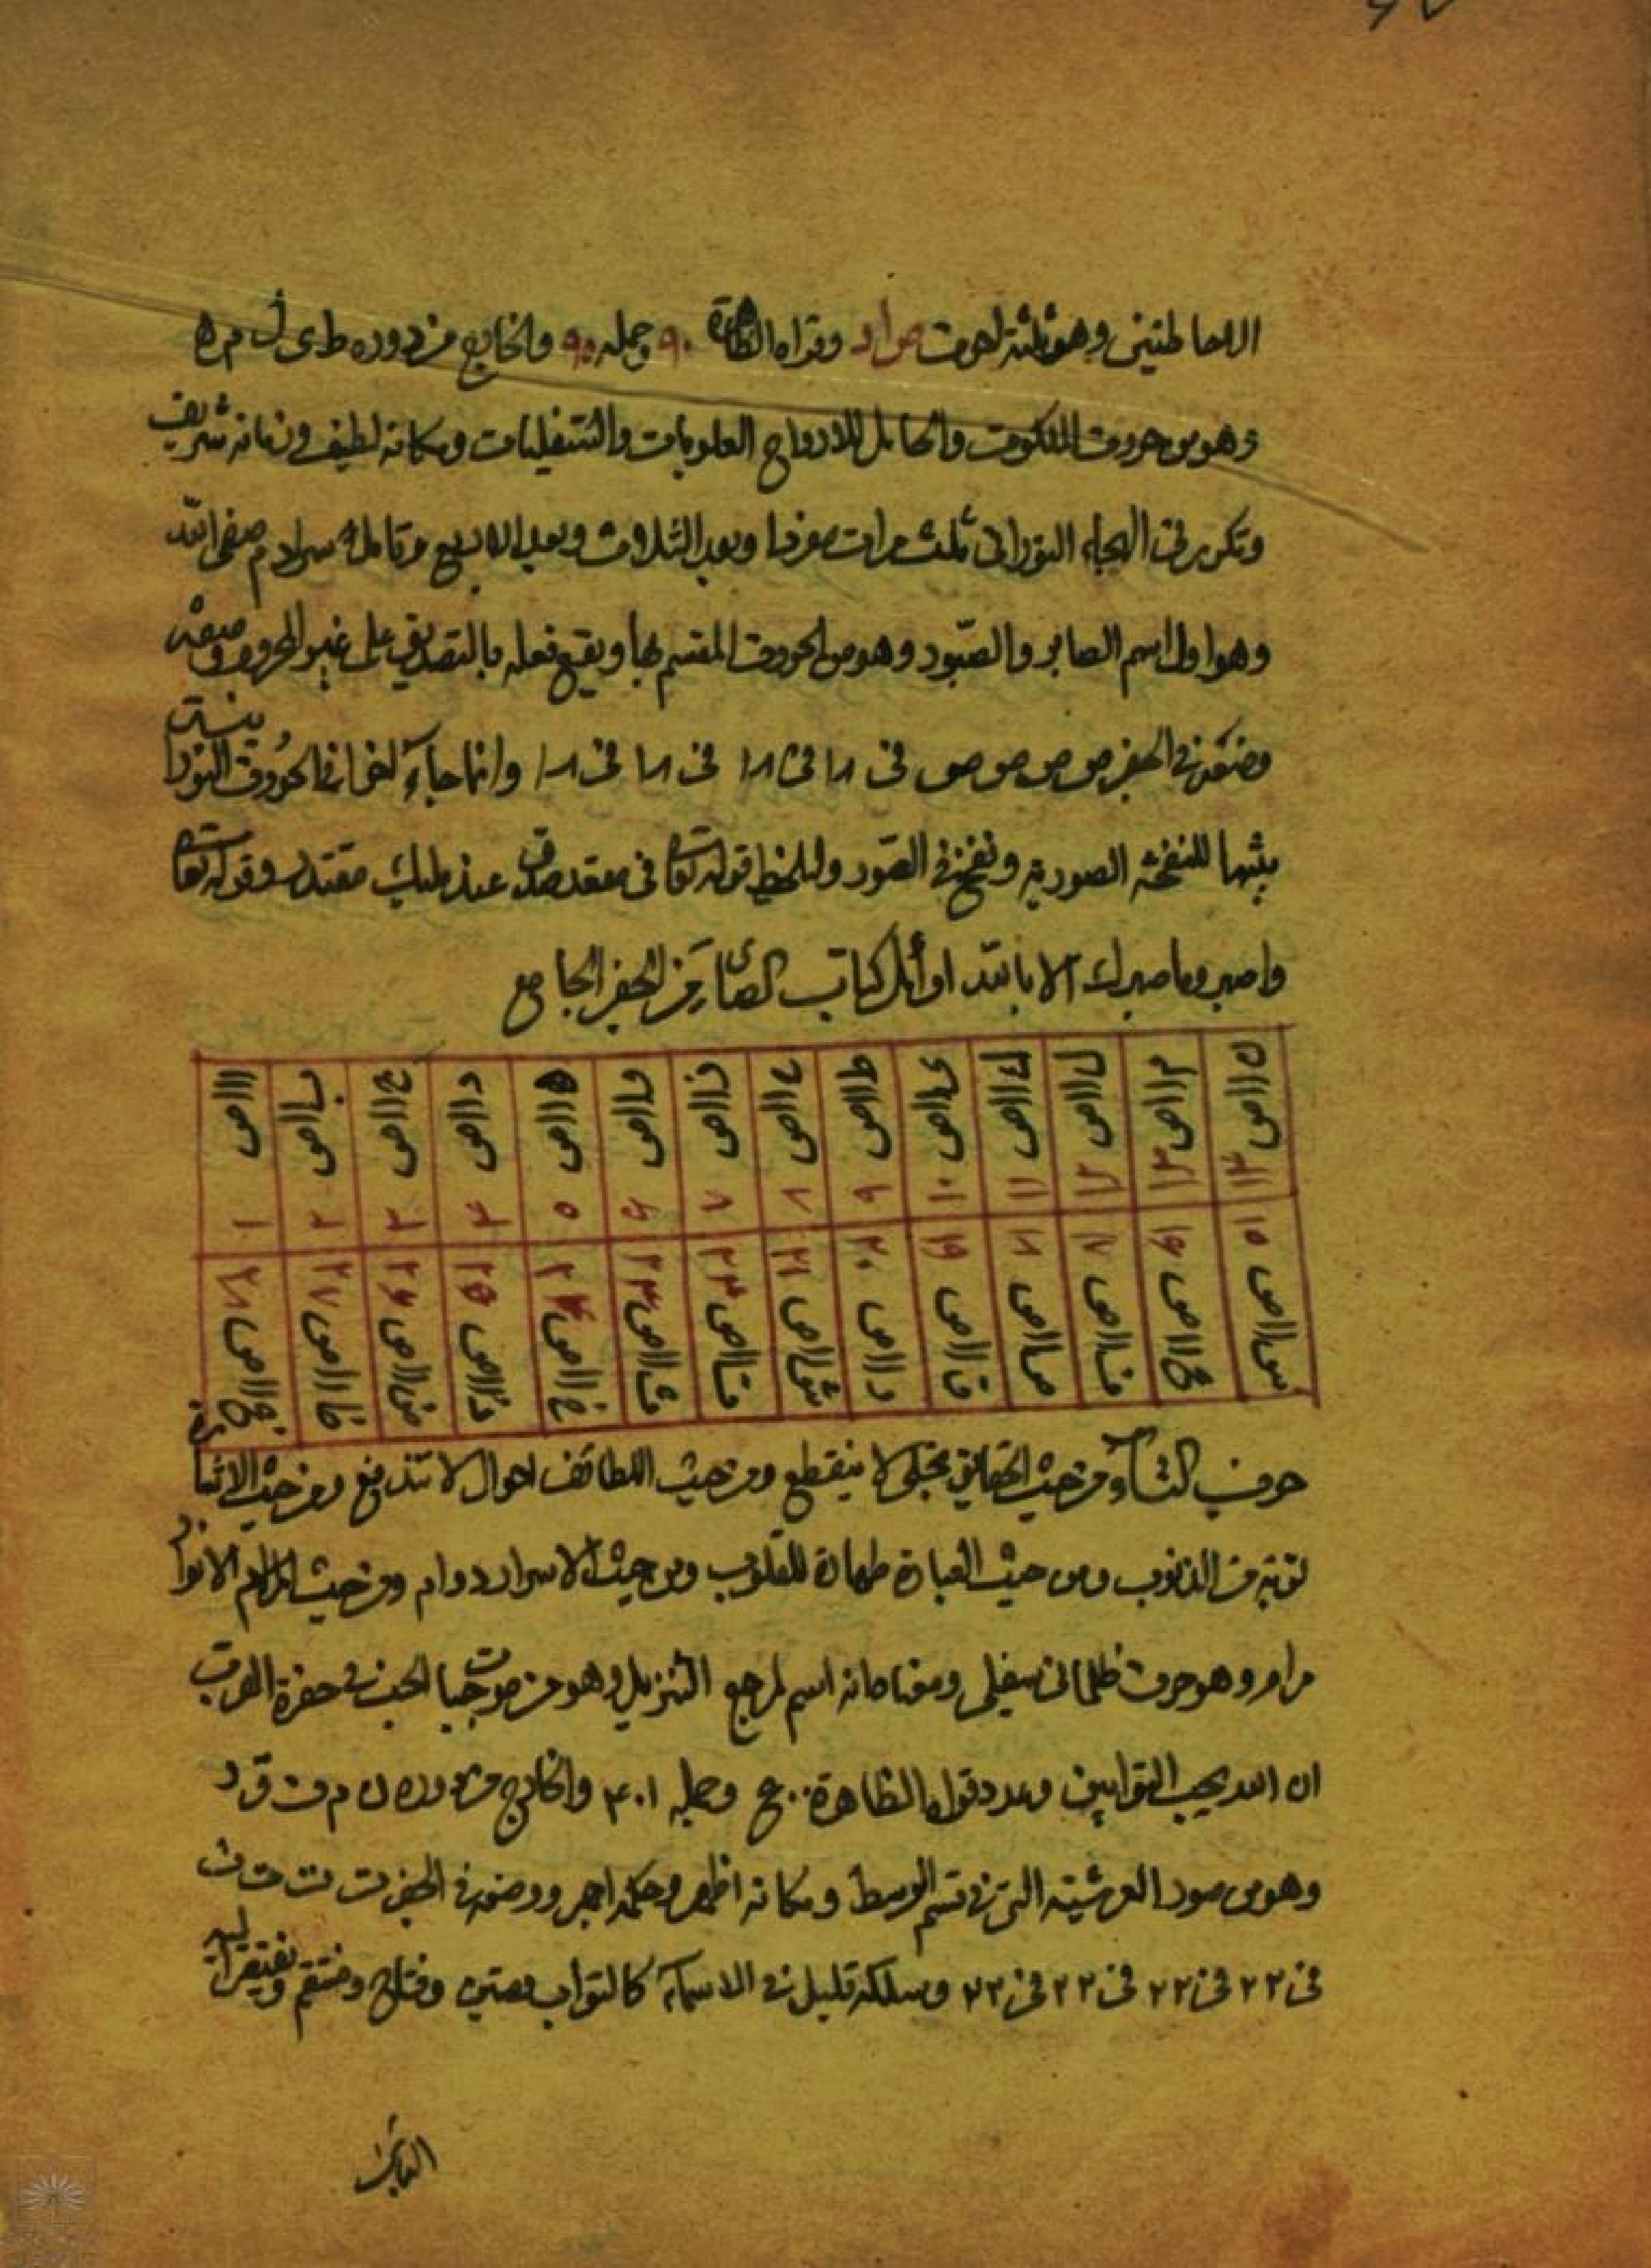 وهو ثلثة احرف ص ا د وقواه الظاهرة ٩٠ وجمله ٩٥ والخارج من دوره ط ى ل م ه
وهو من حروف الملكوت والحامل للارواح العلويات والسفليات ومكانه لطيف وزمانه شريف
وتكرر فى الهجاء النورانى ثلث مرات مفردا وبعد الثلاث وبعد الاربع صفى الله
وهو اول اسم الصابر والصبور وهو من الحروف المقسم بها ويقع فعله بالتصديق على غير الحروف
فى الجفر ص ص ص ص فى ١٨ فى ١٨ فى ١٨ فى ١٨ وانما جاء فى الحروف
للنفخة الصورية ونفخ فى الصور قوله تعالى فى مقعد صدق عند مليك مقتدر وقوله تعالى
واصبر وما صبرك الا بالله اوائل كتاب الصاد من الجفر الجامع
ن ا ا ص ١٤ م ا ا ص ١٣ ل ا ا ص ١٢ ك ا ا ص ١١ ى ا ا ص ١٠ ط ا ا ص ٩ ح ا ا ص ٨ ز ا ا ص ٧ و ا ا ص ۶ ه ا ا ص ٥ د ا ا ص ۴ ج ا ا ص ٣ ب ا ا ص ٢ ا ا ا ص ١
س ا ا ص ١٥ ع ا ا ص ١۶ ف ا ا ص ١٧ ص ا ا ص ١٨ ق ا ا ص ١٩ ر ا ا ص ٢٠ ش ا ا ص ٢١ ت ا ا ص ٢٢ ث ا ا ص ٢٣ خ ا ا ص ٢۴ ذ ا ا ص ٢٥ ض ا ا ص ٢۶ ظ ا ا ص ٢٧ غ ا ا ص ٢٨
حرف التاء ومن حيث الحقايق تجلى لا ينقطع ومن حيث اللطائف احوال لا تندفع ومن حيث الاشارة
توبة من الذنوب ومن حيث العبارة طهارة للقلوب ومن حيث الاسرار دوام ومن حيث الانوار
مرام وهو حرف ظلمانى سفلى ومعناه انه اسم لمرجع التنزيل وهو من الحب فى حضرة القرب
ان الله يحب التوابين وعدد قواه الظاهرة وجمله ۴٠١ والخارج من دوره ن م ف ق د
وهو من صور العرشية التى فى قسم الوسط ومكانه اظهر وحكمه اجهر ووضعه فى الجفر ت ت ت ت
فى ٢٢ فى ٢٢ فى ٢٢ فى ٢٢ وسلكه قليل فى الاسماء كالتواب ومتين وفتاح ومنتقم ويفتقر اليه